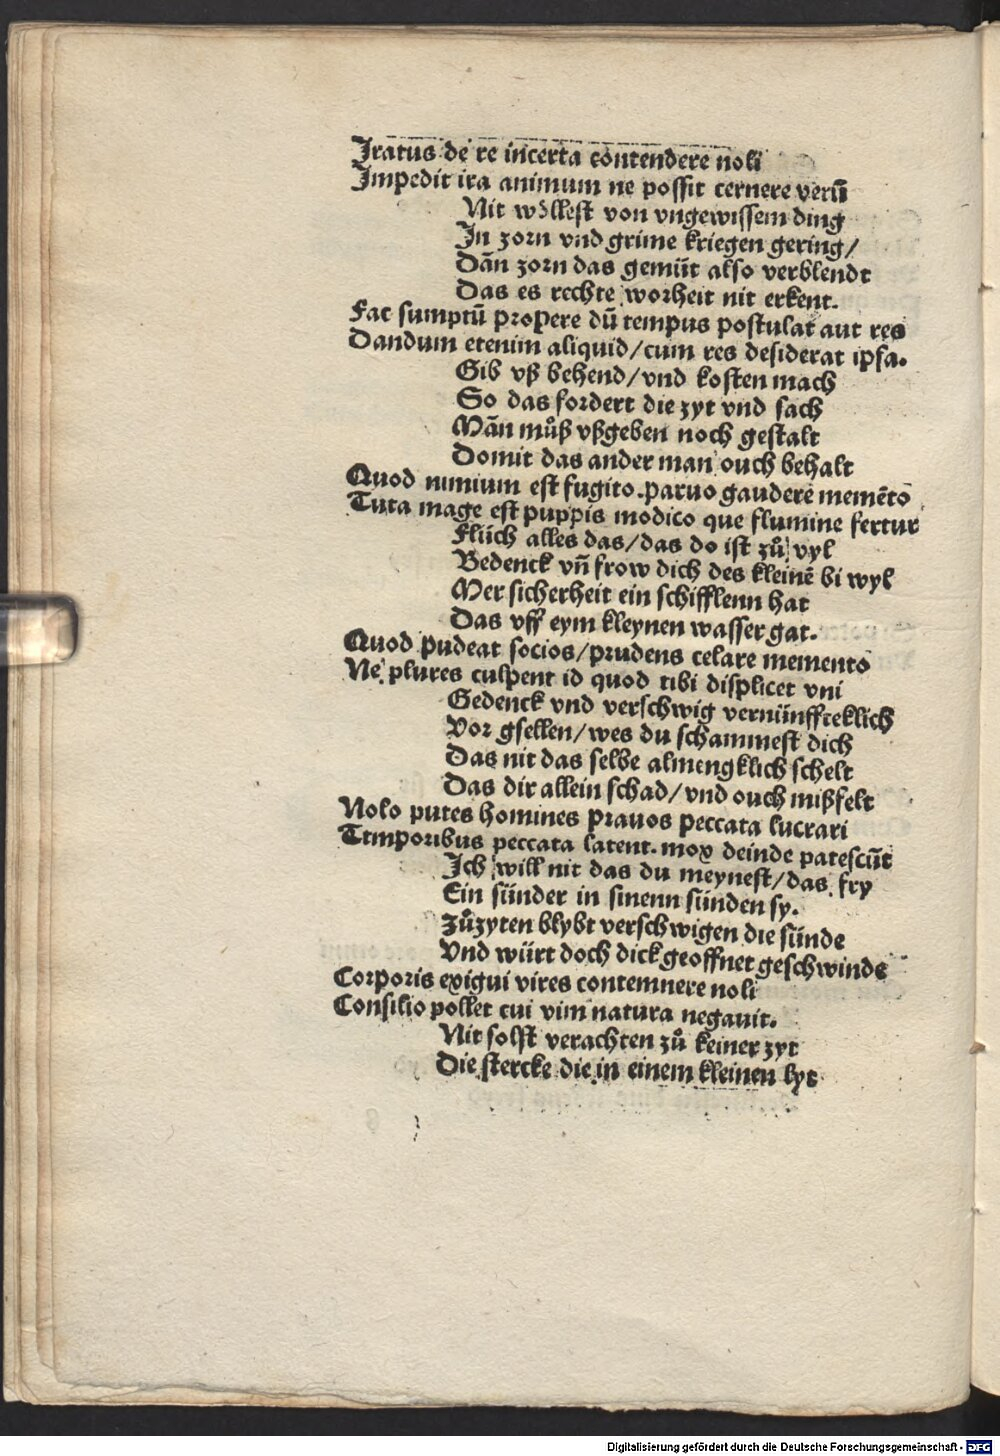 Iratus de re incerta contendere noli
Impedit ira animum ne possit cernere verū
Nit wöllest von vngewissem ding
In zorn vnd grime kriegen gering/
Dañ zorn das gemüt also verblendt
Das es rechte worheit nit erkent.
Fac sumptū propere dū tempus postulat aut res
Dandum etenim aliquid/cum res desiderat ipsa.
Gib vß behend/vnd kosten mach
So das fordert die zyt vnd sach
Mañ můß vßgeben noch gestalt
Domit das ander man ouch behalt
Quod nimium est fugito. paruo gaudere memēto
Tuta mage est puppis modico que flumine fertur
Flüch alles das/das do ist zů vyl
Bedenck vñ frow dich des kleinē bi wyl
Mer sicherheit ein schifflenn hat
Das vff eym kleynen wasser gat.
Quod pudeat socios/prudens celare memento
Ne plures culpent id quod tibi displicet vni
Gedenck vnd verschwig vernünffteklich
Vor gsellen/wes du schammest dich
Das nit das selbe almengklich schelt
Das dir allein schad/vnd ouch mißfelt
Nolo putes homines prauos peccata lucrari
Temporibus peccata latent. mox deinde patescūt
Ich will nit das du meynest/das fry
Ein sünder in sinenn sünden sy.
Zůzyten blybt verschwigen die sünde
Vnd würt doch dick geoffnet geschwinde
Corporis exigui vires contemnere noli
Consilio pollet cui vim natura negauit.
Nit solst verachten zů keiner zyt
Die stercke die in einem kleinen lyt
Digitalisierung gefördert durch die Deutsche Forschungsgemeinschaft - DFG